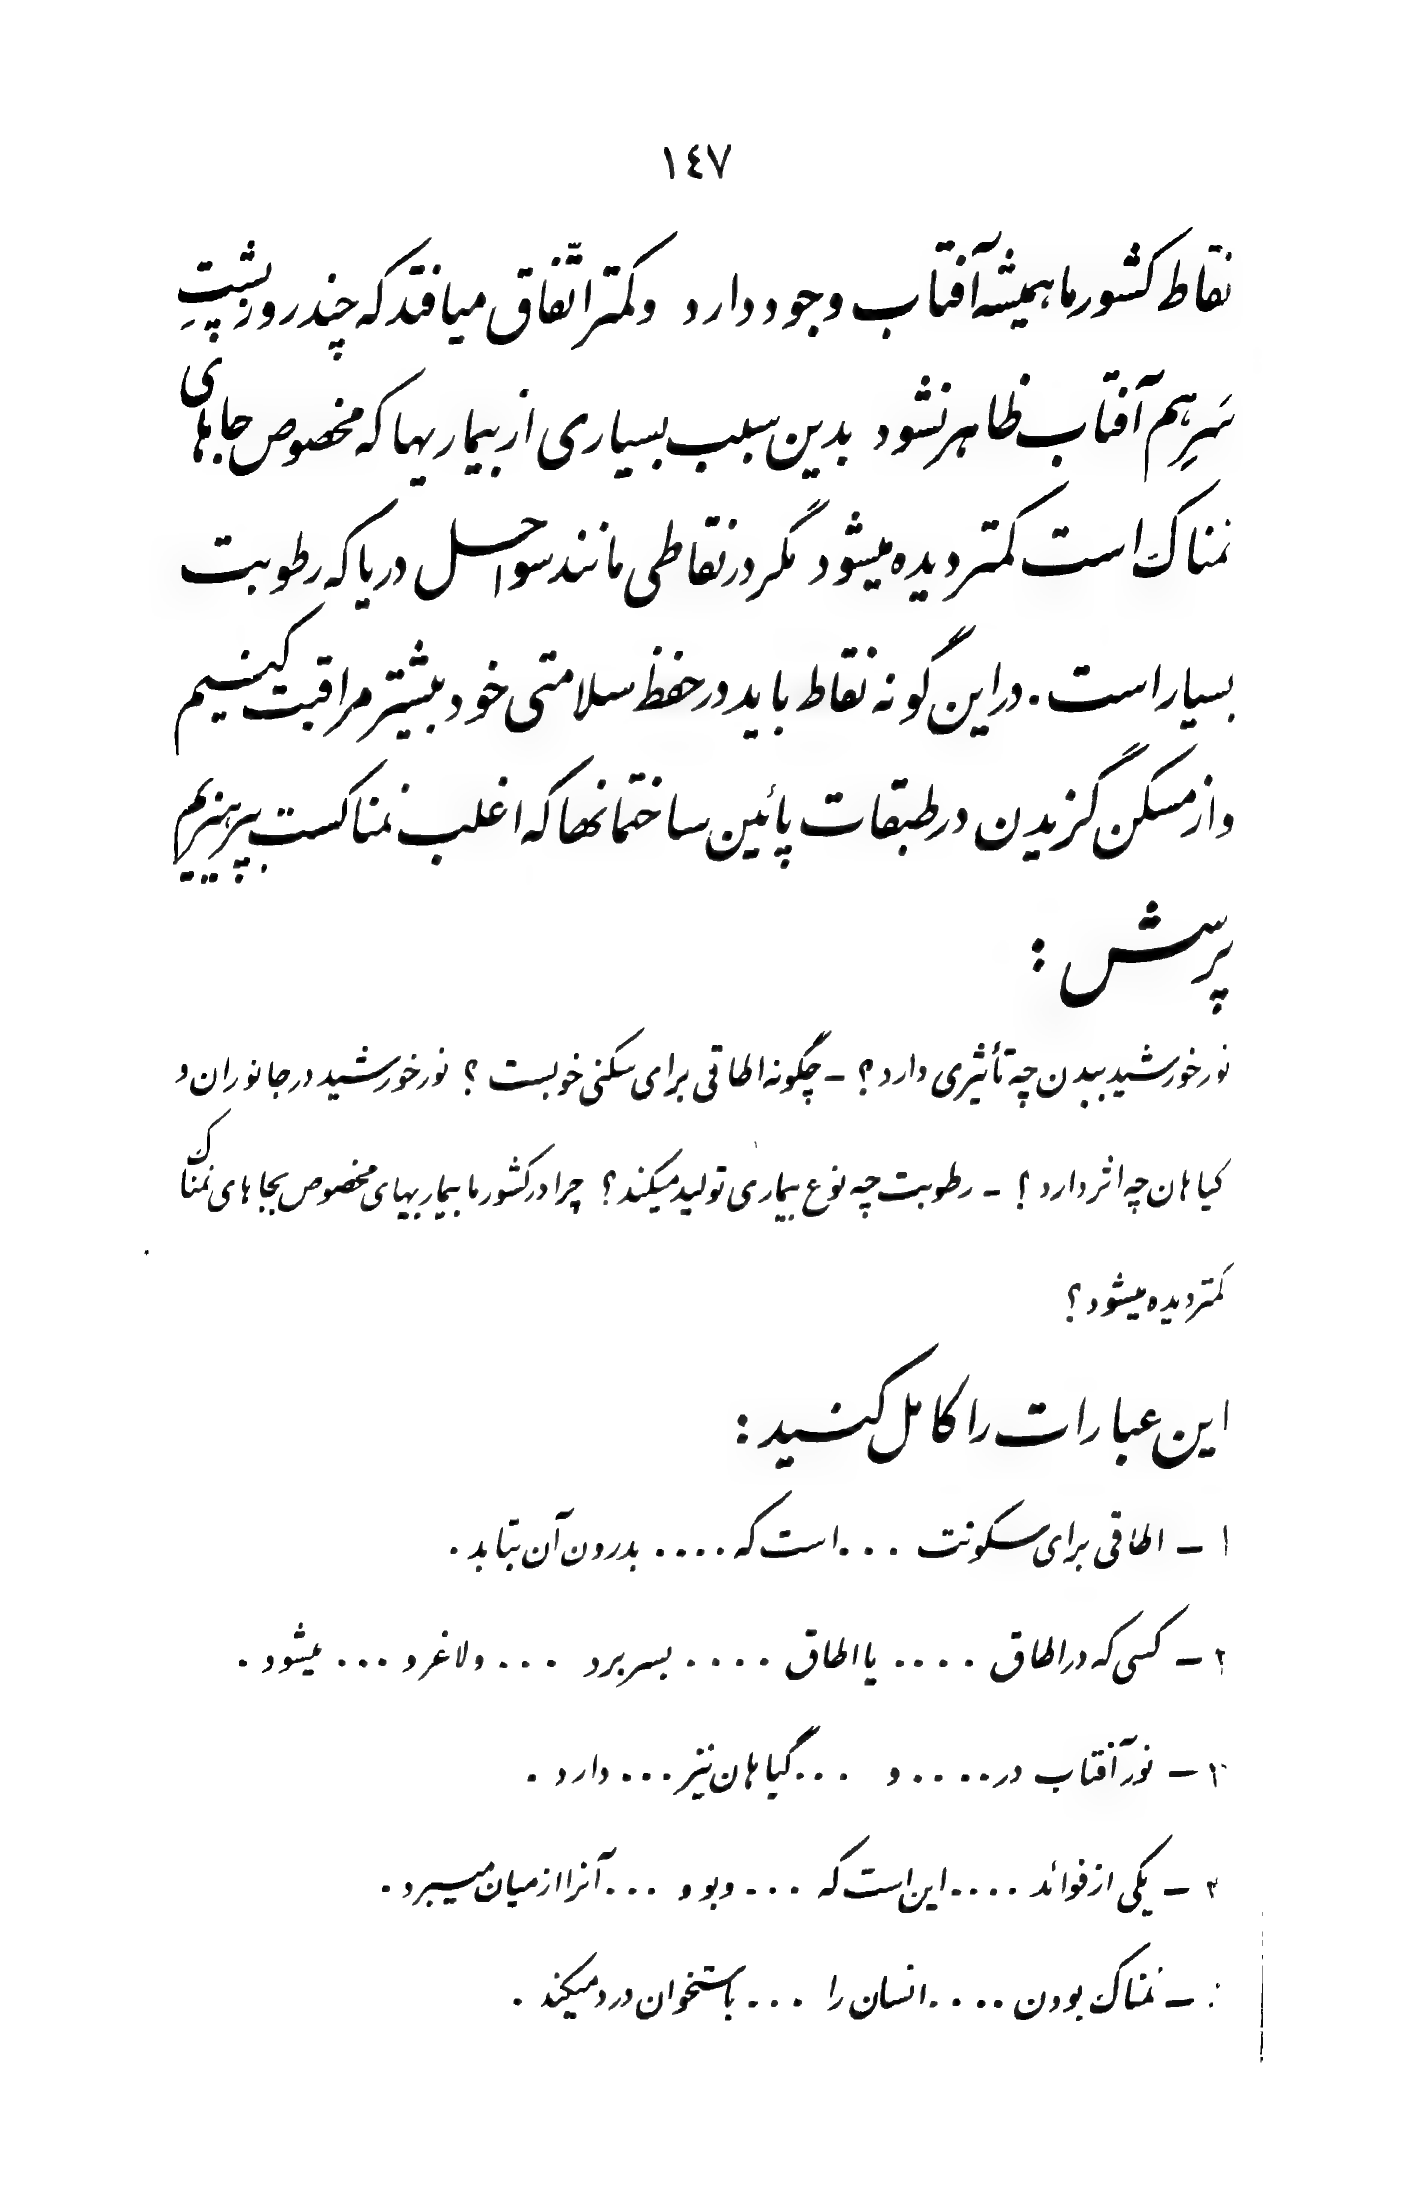 ١٤٧
نقاط کشور ما همیشه آفتاب وجود دارد و کمتر اتّفاق میافتد که چند روز پشتِ
سَرِ هم آفتاب ظاهر نشود بدین سبب بسیاری از بیماریها که مخصوص جاهای
نمناک است کمتر دیده میشود مگر در نقاطی مانند سواحل دریا که رطوبت
بسیار است . در این گونه نقاط باید در حفظ سلامتی خود بیشتر مراقبت کنیم
و از مسکن گزیدن در طبقات پائین ساختمانها که اغلب نمناکست بپرهیزیم
پرسش :
نور خورشید ببدن چه تأثیری دارد ؟ ـ چگونه اطاقی برای سکنی خوبست ؟ نور خورشید در جانوران و
گیاهان چه اثر دارد ؟ ـ رطوبت چه نوع بیماری تولید میکند ؟ چرا در کشور ما بیماریهای مخصوص بجاهای نمناک
کمتر دیده میشود ؟
این عبارات را کامل کنید :
۱ ـ اطاقی برای سکونت ... است که .... بدرون آن بتابد .
۲ ـ کسی که در اطاق .... یا اطاق .... بسر برد ... و لاغر و ... میشود .
۳ ـ نور آفتاب در .... و ... گیاهان نیز ... دارد .
۴ ـ یکی از فوائد .... این است که ... و بو و ... آنرا از میان میبرد .
ـ نمناک بودن .... انسان را ... باستخوان درد میکند .